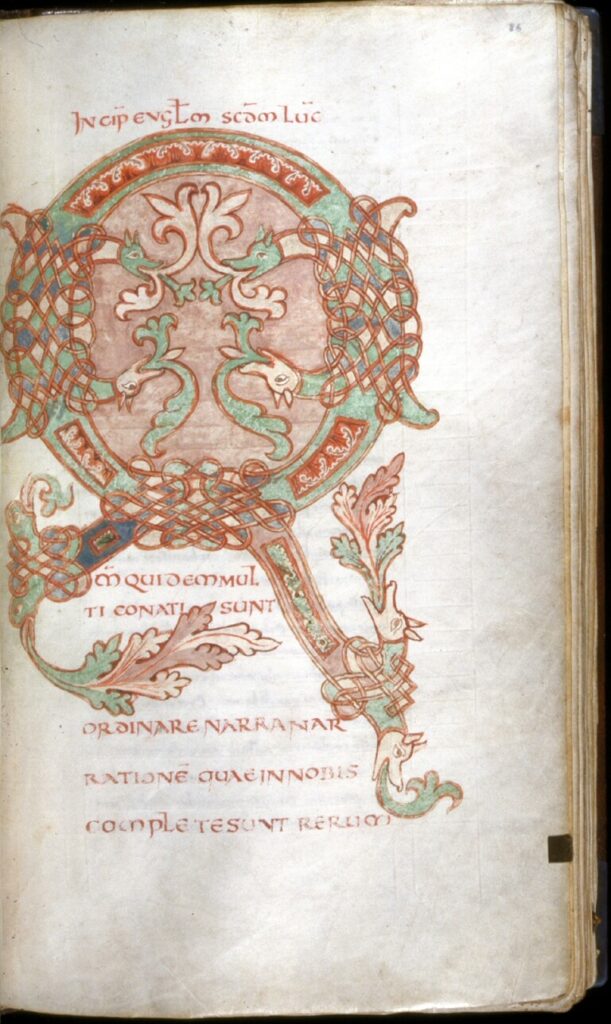 86
INCIP̄ EVGL̄M SCD̄M LUC̄
Q
M̄ QUIDEM MUL
TI CONATI SUNT
ORDINARE NARRANAR
RATIONĒ QUAE IN NOBIS
COMPLETE SUNT RERUM